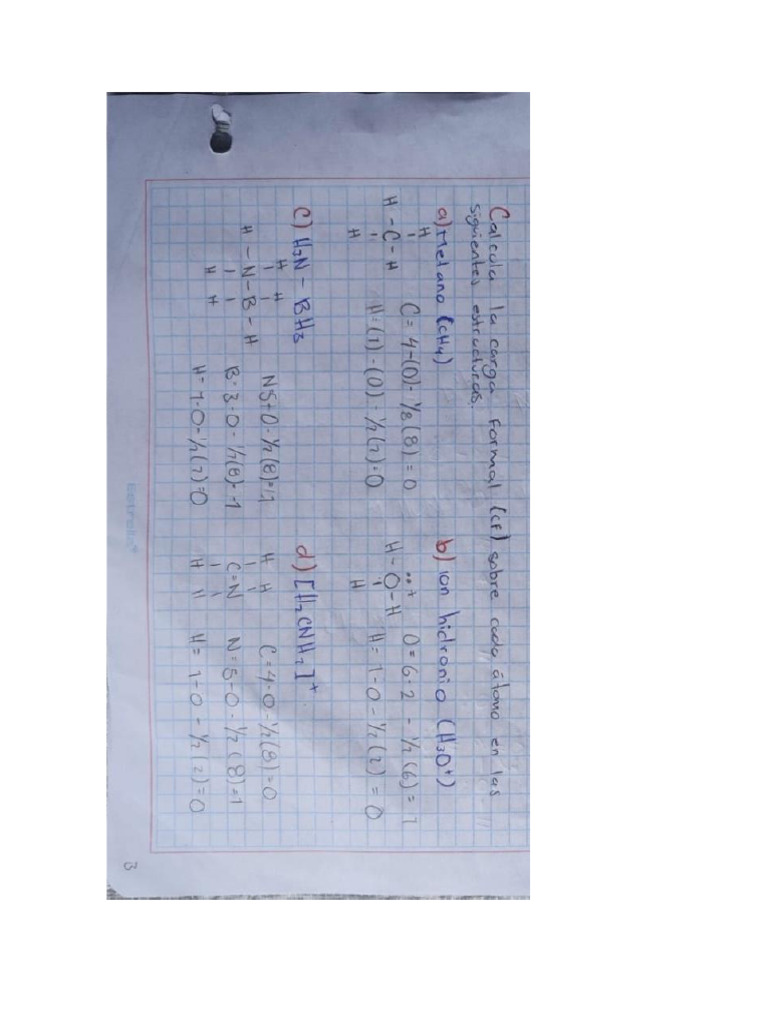 Calcula la carga formal (CF) sobre cada átomo en las
siguientes estructuras.
a) Metano (CH4)
H
H - C - H
H
C = 4-(0)- 1/8 (8) = 0
H: (1) - (0) - 1/2 (2) = 0
b) Ion hidronio (H3O+)
H - O - H
H
O = 6-2 - 1/2 (6) = 1
H = 1-0 - 1/2 (2) = 0
c) H3N - BH3
H H
H - N - B - H
H H
B = 3-0 - 1/2 (8) = -1
H = 1-0 - 1/2 (2) = 0
d) [H2CNH2]+
H H
C = N
H H
C = 4-0 - 1/2 (8) = 0
N = 5-0 - 1/2 (8) = 1
H = 1-0 - 1/2 (2) = 0
Estrella
3